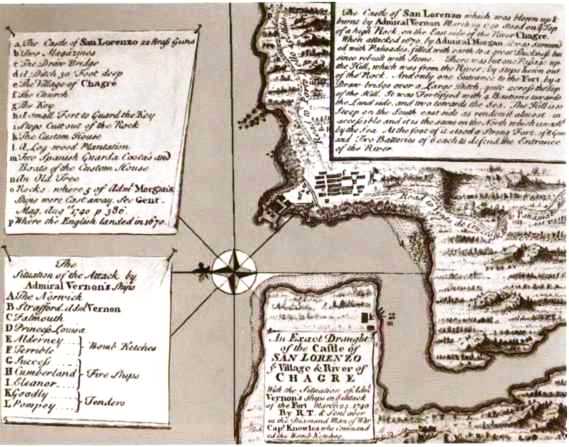 a The Castle of San Lorenzo 22 Brass Guns
b Two Magazines
c The Draw Bridge
d A Ditch 30 Foot deep
e The Village of Chagre
f The Church
g The Key
h A small Fort to Guard the Key
i Steps Cutt out of the Rock
k The Custom House
l A Log wood Plantation
m Two Spanish Guarda Costa's and
Boats of the Custom House
n An Old Tree
o Rocks, where 5 of Adml Morgan's
Ships were Cast away. See Gent.
Mag. Augt 1740 p 386.
p Where the English landed in 1670.
The
Situation of the Attack by
Admiral Vernon's Ships
A The Norwich
B Strafford Adml Vernon
C Falmouth
D Princess Louisa
E Alderney
F Terrible
G Success
Bomb Ketches
H Cumberland
I Eleanor
Fire Ships
K Goodly
L Pompey
Tenders
The Castle of San Lorenzo which was blown up &
burnt by Admiral Vernon March 1740 stood on ye Top
of a high Rock on the East side of the River Chagre.
When attacked 1670 by Admiral Morgan it was Surround
ed with Palisades, filled with earth to a great Thickness but
since rebuilt with Stone. There was but one Passage up
the Hill, which was from the River, by steps hewn out
of the Rock. And only one Entrance to the Fort by a
Draw bridge over a Large Ditch, quite across the Top
of the Hill. It was Fortifyed with 4 Bastions towards
the Land side, and two towards the Sea. The Hill is so
Steep on the South east side as renders it almost in
accessible and it is the same on the North which is wash'd
by the Sea. At the foot of it stood a Strong Fort, of 8 Guns
and Two Batteries of 6 each to defend the Entrance
of the River.
An Exact Draught
of the Castle of
SAN LORENZO
ye Village & River of
CHAGRE
With the Situation of Adml
Vernon's Ships in ye Attack
of the Fort March 1740
By R.T. &
in the Diamond Man of War
Capt Knowles who command
ed the Bomb Ketches.